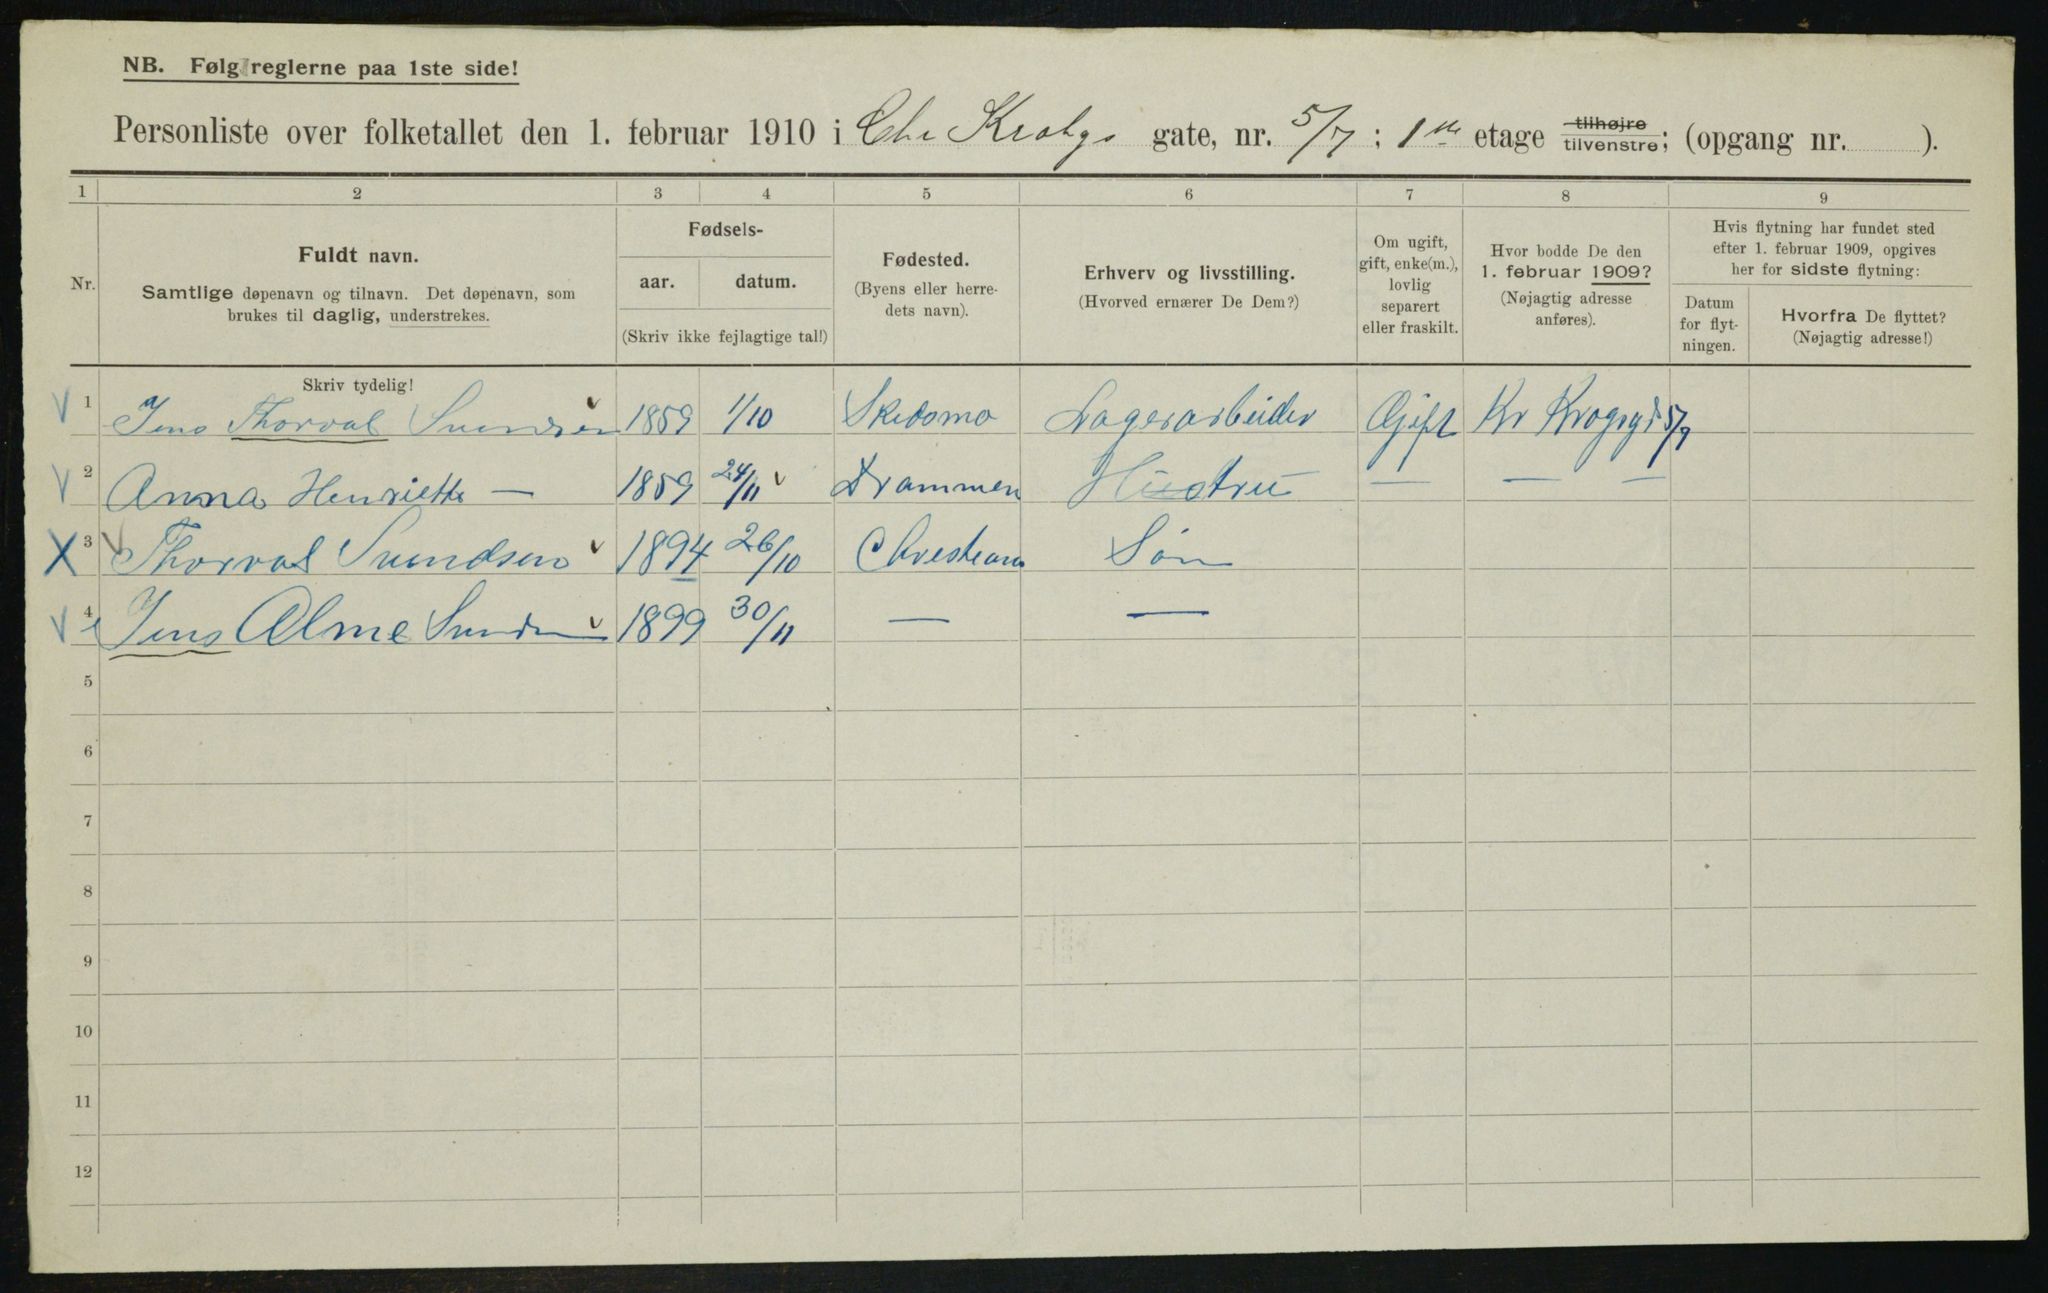 NB. Følg reglerne paa 1ste side!
Personliste over folketallet den 1. februar 1910 i Chr Krohgs gate, nr. 5/7 ; 1ste etage tilhøjre tilvenstre; (opgang nr. ).
1 2 3 4 5 6 7 8 9
Nr.
Fuldt navn.
Samtlige døpenavn og tilnavn. Det døpenavn, som
brukes til daglig, understrekes.
Fødsels-
aar. datum.
(Skriv ikke fejlagtige tal!)
Fødested.
(Byens eller herre-
dets navn).
Erhverv og livsstilling.
(Hvorved ernærer De Dem?)
Om ugift,
gift, enke(m.),
lovlig
separert
eller fraskilt.
Hvor bodde De den
1. februar 1909?
(Nøjagtig adresse
anføres).
Hvis flytning har fundet sted
efter 1. februar 1909, opgives
her for sidste flytning:
Datum
for flyt-
ningen.
Hvorfra De flyttet?
(Nøjagtig adresse!)
Skriv tydelig!
1 Jens Thorval Svendsen 1859 1/10 Skedsmo Lagerarbeider Gift Kr Krogsg 5/7
2 Anna Henriette — 1859 24/11 Drammen Hustru — — —
3 Thorval Svendsen 1894 26/10 Christiania Søn
4 Jens Alme Svendsen 1899 30/11 — —
5
6
7
8
9
10
11
12